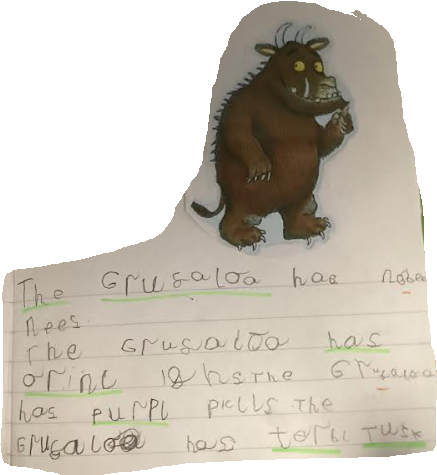 The Grusaloa has nobee
nees
The Grusaloa has
orinl is hsThe Grusaloa
has purpl pills The
Grusaloo has terbl Tusk